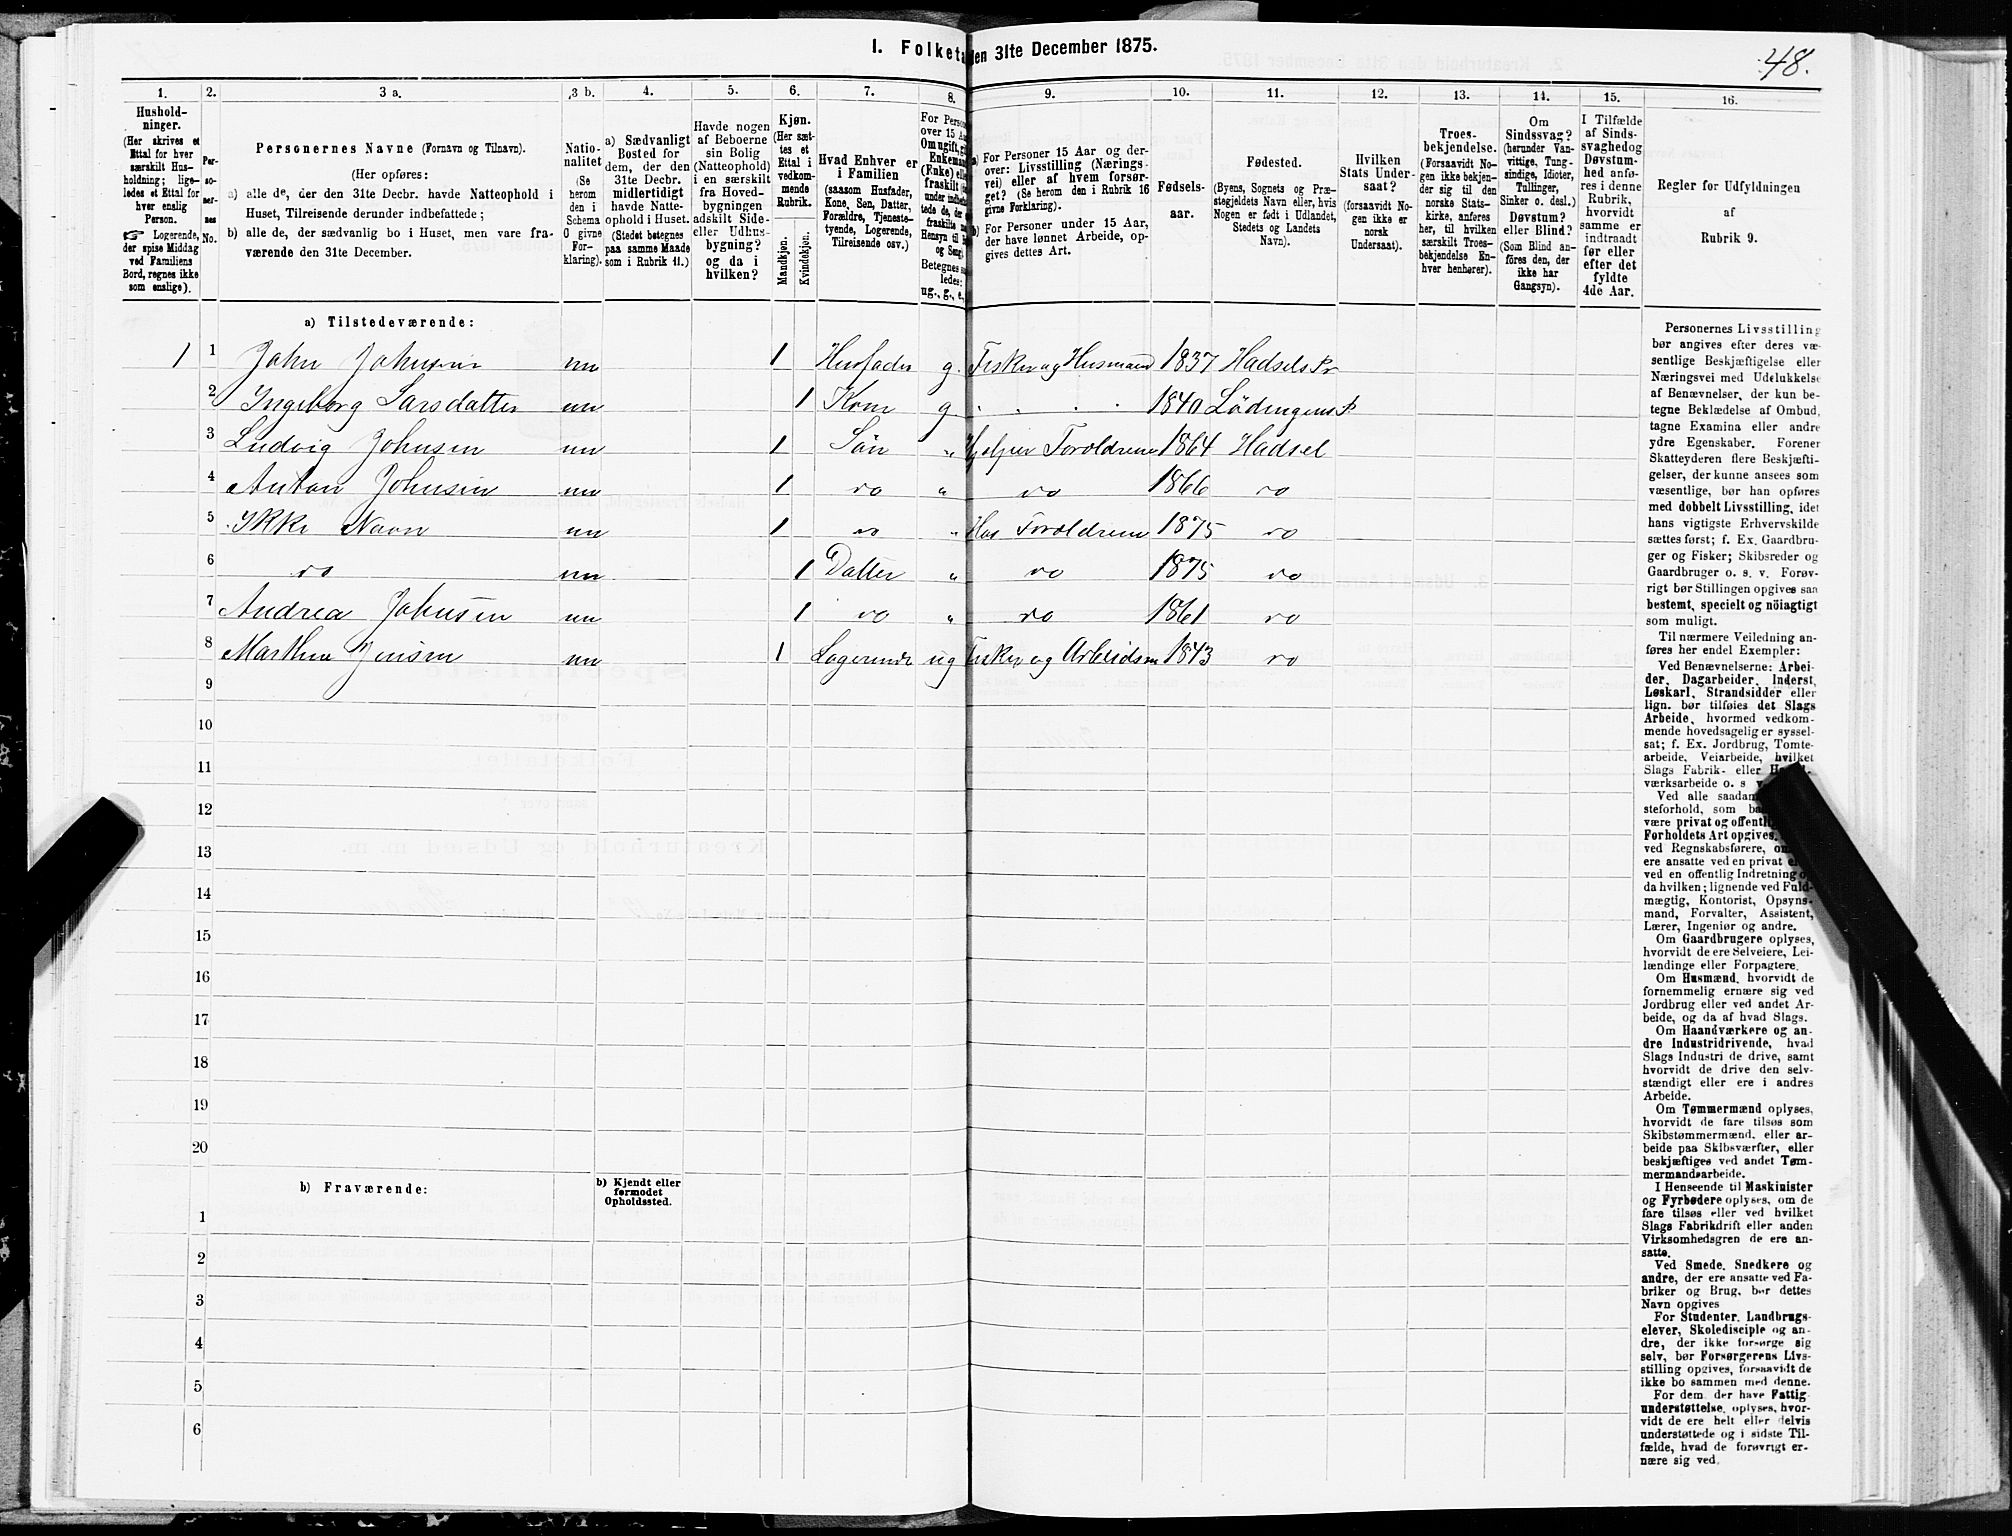 I. Folketa den 31te December 1875.
48.
1. 2. 3 a. 3 b. 4. 5. 6. 7. 8. 9. 10. 11. 12. 13. 14. 15. 16.
Hushold-
ninger.
(Her skrives et
Ettal for hver
særskilt Hus-
holdning; lige-
ledes et Ettal for
hver enslig
Person.
☞ Logerende,
der spise Middag
ved Familiens
Bord, regnes ikke
som enslige).
Per-
so-
ner-
nes
No.
Personernes Navne (Fornavn og Tilnavn).
(Her opføres:
a) alle de, der den 31te Decbr. havde Natteophold i
Huset, Tilreisende derunder indbefattede;
b) alle de, der sædvanlig bo i Huset, men vare fra-
værende den 31te December.
Natio-
nalitet
(Se
herom
den i
Schema
O givne
For-
klaring).
a) Sædvanligt
Bosted for
dem, der den
31te Decbr.
midlertidigt
havde Natte-
ophold i Huset.
(Stedet betegnes
paa samme Maade
som i Rubrik 11.)
Havde nogen
af Beboerne
sin Bolig
(Natteophold)
i en særskilt
fra Hoved-
bygningen
adskilt Side-
eller Udhus-
bygning?
og da i
hvilken?
Kjøn.
(Her sæt-
tes et
Ettal i
vedkom-
mende
Rubrik.
Mandkjøn.
Kvindekjøn.
Hvad Enhver er
i Familien
(saasom Husfader,
Kone, Søn, Datter,
Forældre, Tjeneste-
tyende, Logerende,
Tilreisende osv.)
For Perso
over 15 Aa
Om ugift, gi
Enkemand
(Enke) elle
fraskilt
under indbefat-
tede de, der
fraskilte
Hensyn til
og Seng).
Betegnes s
ledes:
ug., g., e.,
a) For Personer 15 Aar og der-
over: Livsstilling (Nærings-
vei) eller af hvem forsør-
get? (Se herom den i Rubrik 16
givne Forklaring).
b) For Personer under 15 Aar,
der have lønnet Arbeide, op-
gives dettes Art.
Fødsels-
aar.
Fødested.
(Byens, Sognets og Præ-
stegjeldets Navn eller, hvis
Nogen er født i Udlandet,
Stedets og Landets
Navn).
Hvilken
Stats Under-
saat?
(forsaavidt No-
gen ikke er
norsk
Undersaat).
Troes-
bekjendelse.
(Forsaavidt No-
gen ikke bekjen-
der sig til den
norske Stats-
kirke, anføres
her, til hvilken
særskilt Troes-
bekjendelse En-
hver henhører).
Om
Sindssvag?
(herunder Van-
vittige, Tung-
sindige, Idioter,
Tullinger,
Sinker o. desl.)
Døvstum?
eller Blind?
(Som Blind an-
føres den, der
ikke har
Gangsyn).
I Tilfælde
af Sinds-
svaghed og
Døvstum-
hed anfø-
res i denne
Rubrik,
hvorvidt
samme er
indtraadt
før eller
efter det
fyldte
4de Aar.
Regler for Udfyldningen
af
Rubrik 9.
a) Tilstedeværende:
1 1 John Johnsen nn 1 Husfader g. Fisker og Husmand 1837 Hadsels Pr
2 Ingeborg Larsdatter nn 1 Kone g 1840 Lödingens P
3 Ludvig Johnsen nn 1 Sön " Hjelper Foroldrene 1864 Hadsel
4 Anton Johnsen nn 1 do " do 1866 do
5 Ikke Navn nn 1 do " Hos Foroldrene 1875 do
6 do nn 1 Datter " do 1875 do
7 Andrea Johnsen nn 1 do " do 1861 do
8 Marthin Jensen nn 1 Logerende ug Fisker og Arbeidsm 1843 do
9
10
11
12
13
14
15
16
17
18
19
20
b) Fraværende:
b) Kjendt eller
formodet
Opholdssted.
1
2
3
4
5
6
Personernes Livsstilling
bør angives efter deres væ-
sentlige Beskjæftigelse eller
Næringsvei med Udelukkelse
af Benævnelser, der kun be-
tegne Beklædelse af Ombud,
tagne Examina eller andre
ydre Egenskaber. Forener
Skatteyderen flere Beskjæfti-
gelser, der kunne ansees som
væsentlige, bør han opføres
med dobbelt Livsstilling, idet
hans vigtigste Erhvervskilde
sættes først; f. Ex. Gaardbru-
ger og Fisker; Skibsreder og
Gaardbruger o. s. v. Forøv-
rigt bør Stillingen opgives saa
bestemt, specielt og nöiagtigt
som muligt.
Til nærmere Veiledning an-
føres her endel Exempler:
Ved Benævnelserne: Arbei-
der, Dagarbeider, Inderst,
Løskarl, Strandsidder eller
lign. bør tilføies det Slags
Arbeide, hvormed vedkom-
mende hovedsagelig er syssel-
sat; f. Ex. Jordbrug, Tomte-
arbeide, Veiarbeide, hvilket
Slags Fabrik- eller
værksarbeide o. s
Ved alle saadan
steforhold, som
være privat og offentl
Forholdets Art opgives,
ved Regnskabsførere,
ere ansatte ved en privat
ved en offentlig Indretning
da hvilken; lignende ved Fuld-
mægtig, Kontorist, Opsyns-
mand, Forvalter, Assistent,
Lærer, Ingeniør og andre.
Om Gaardbrugere oplyses,
hvorvidt de ere Selveiere, Lei-
lændinge eller Forpagtere.
Om Husmænd, hvorvidt de
fornemmelig ernære sig ved
Jordbrug eller ved andet Ar-
beide, og da af hvad Slags.
Om Haandværkere og an-
dre Industridrivende, hvad
Slags Industri de drive, samt
hvorvidt de drive den selv-
stændigt eller ere i andres
Arbeide.
Om Tømmermænd oplyses,
hvorvidt de fare tilsøs som
Skibstømmermænd, eller ar-
beide paa Skibsværfter, eller
beskjæftiges ved andet Tøm-
mermandsarbeide.
I Henseende til Maskinister
og Fyrbødere oplyses, om de
fare tilsøs eller ved hvilket
Slags Fabrikdrift eller anden
Virksomhedsgren de ere an-
satte.
Ved Smede, Snedkere og
andre, der ere ansatte ved Fa-
briker og Brug, bør dettes
Navn opgives
For Studenter, Landbrugs-
elever, Skoledisciple og an-
dre, der ikke forsørge sig
selv, bør Forsørgerens Livs-
stilling opgives, forsaavidt de
ikke bo sammen med denne.
For dem, der have Fattig-
understøttelse, oplyses, hvor-
vidt de ere helt eller delvis
understøttede og i sidste Til-
fælde, hvad de forøvrigt er-
nære sig ved.